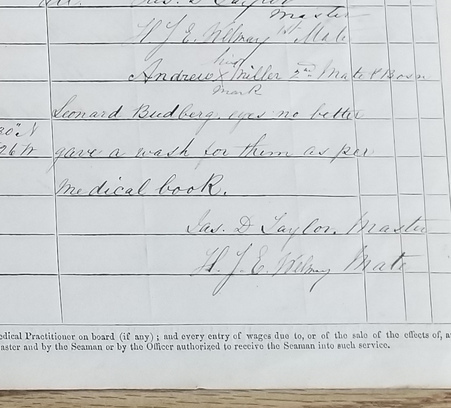 Jas. D Taylor
Master
H. J. E. Wilmay 1st Mate
his
Andrew X Miller 2nd Mate & Bosn
mark
Leonard Budberg, eyes no better
30" N
26 W gave a wash for them as per
medical book.
Jas. D Taylor. Master
H. J. E. Wilmay Mate
edical Practitioner on board (if any); and every entry of wages due to, or of the sale of the effects of, a
aster and by the Seaman or by the Officer authorized to receive the Seaman into such service.